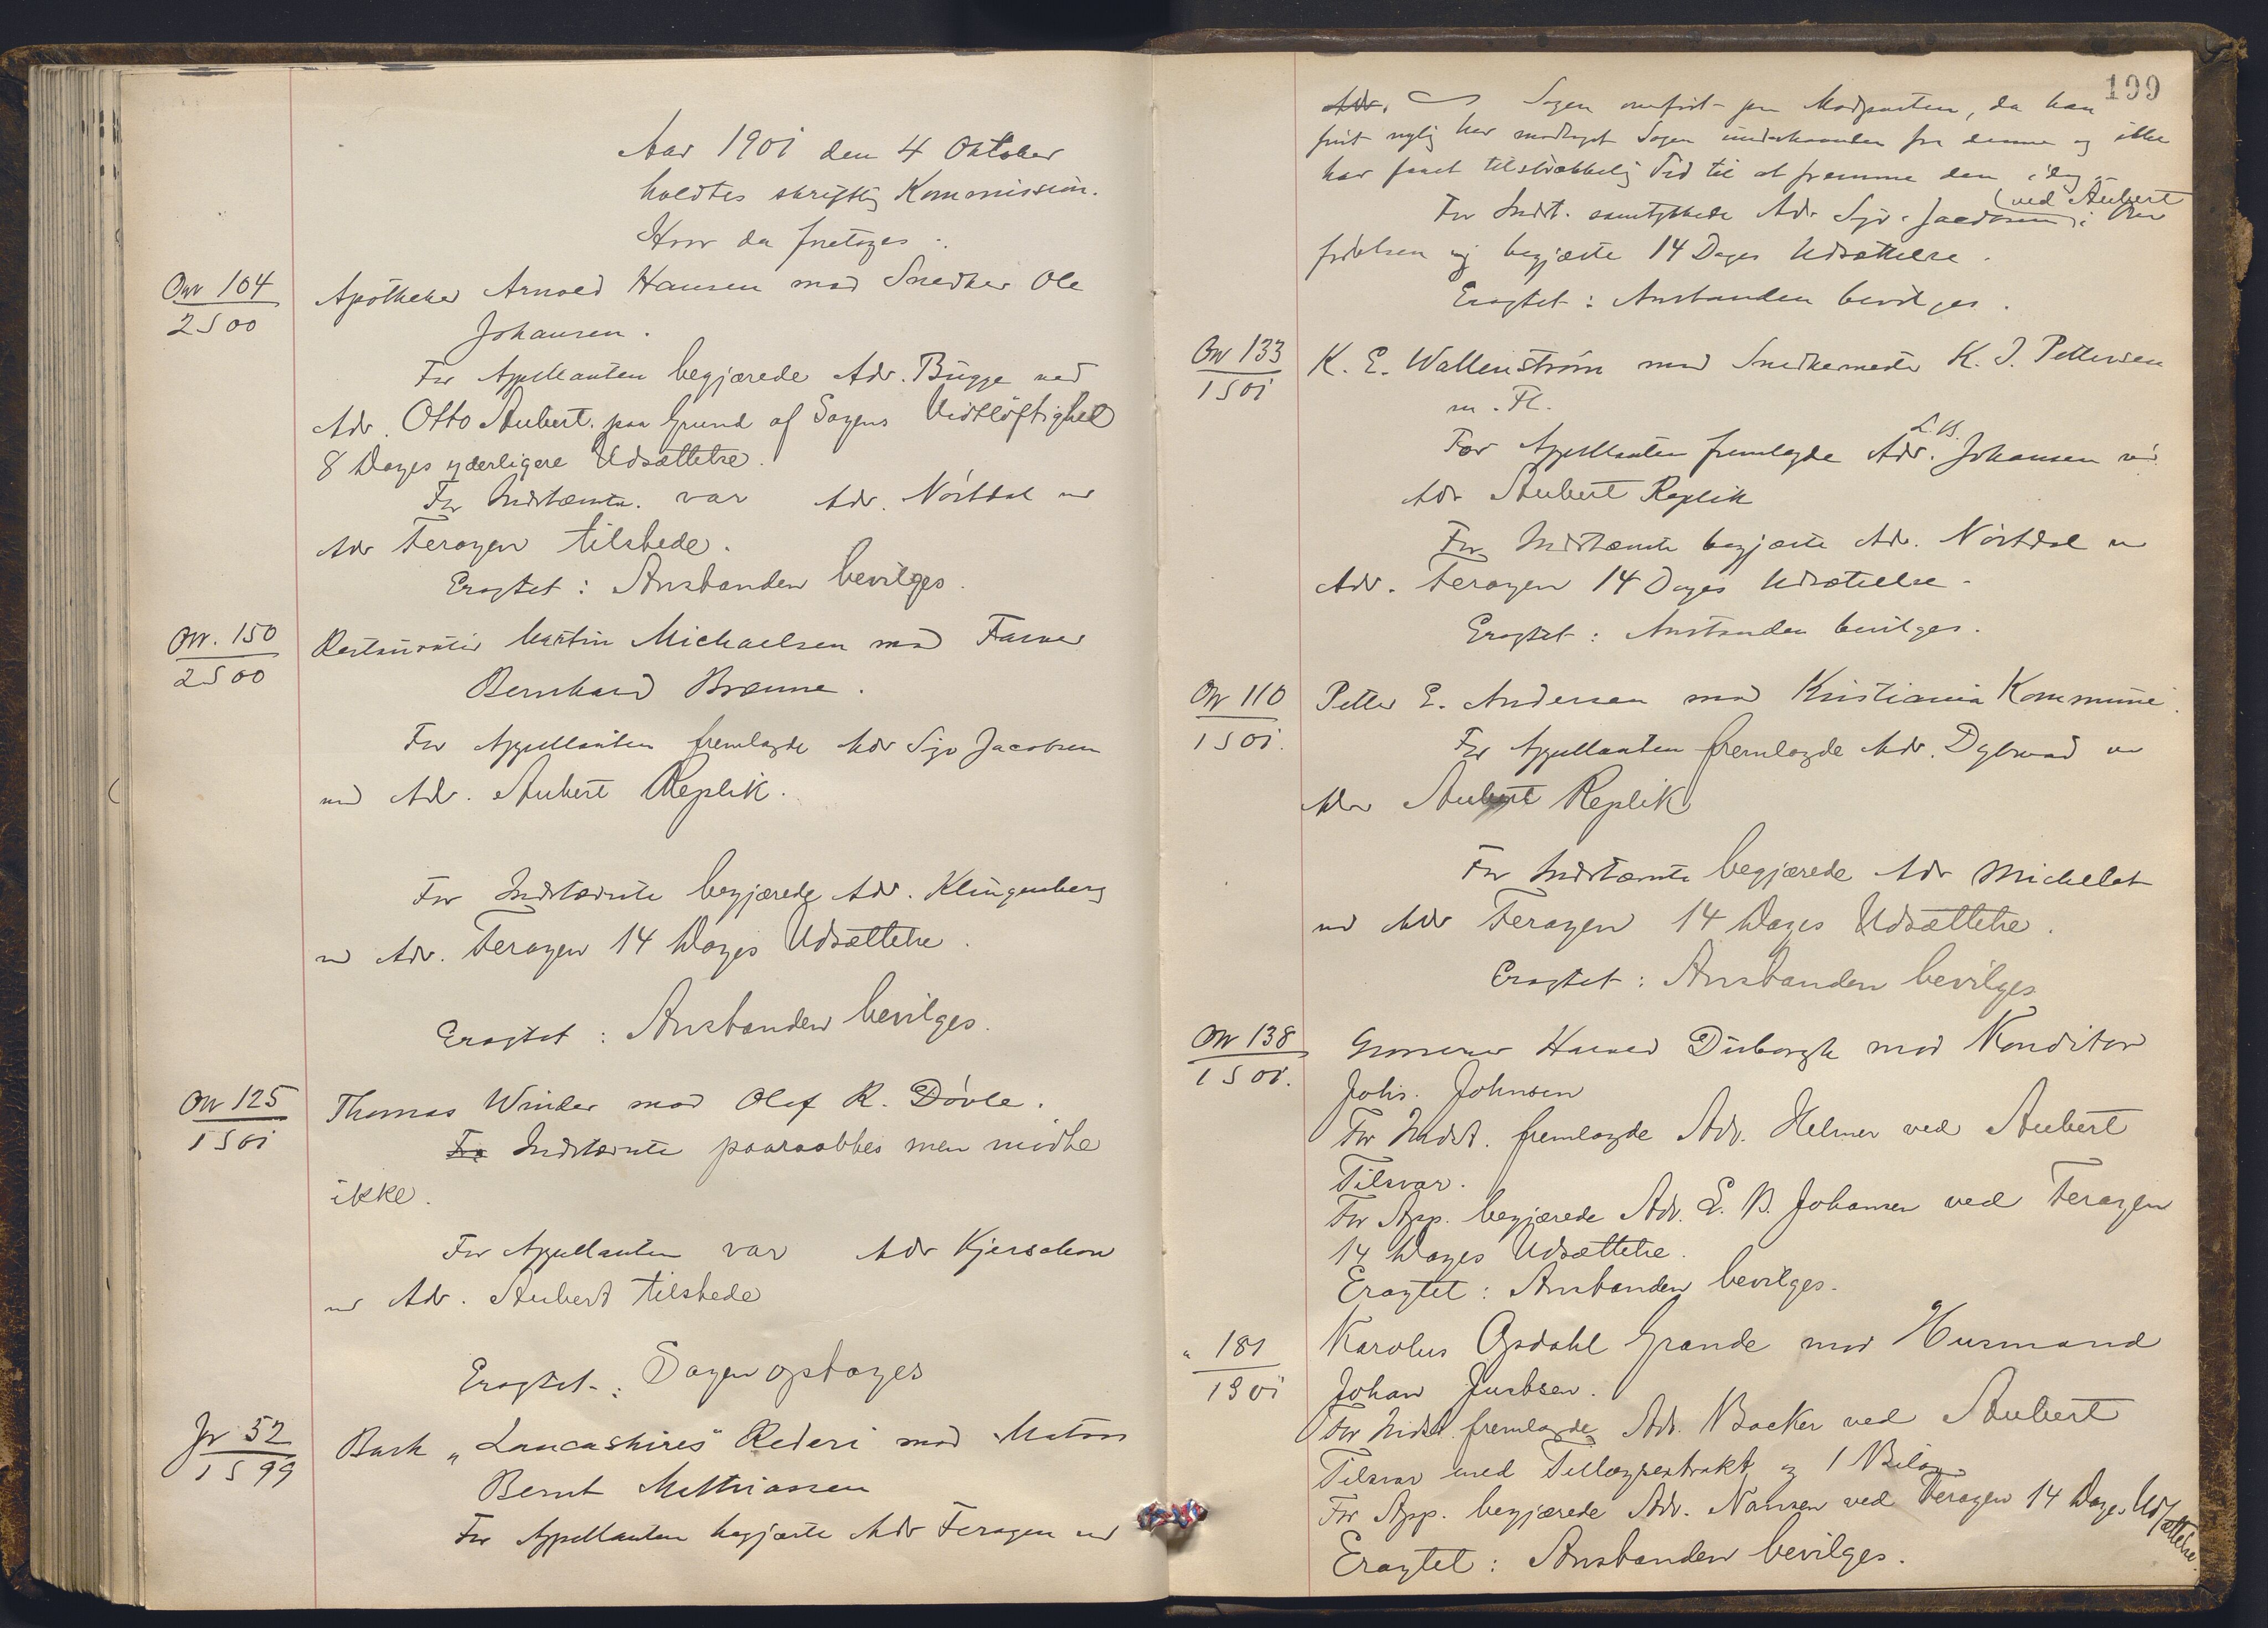 Aar 1901 den 4 Oktober
holdtes skriftlig Kommission.
Hvor da foretoges:
Ow 104
2 S 00
Apotheker Arnold Hansen mod Snedker Ole
Johansen.
For Appellanten begjærede Adv. Bugge ved
Adv. Otto Aubert paa Grund af Sagens Vidtløftighed
8 Dages yderligere Udsættelse.
For Indstævnte var Adv. Nørtdal ved
Adv Feragen tilstede.
Eragtet: Anstanden bevilges.
Ow. 150
2 S 00
Restauratør Martin Michaelsen mod Farver
Bernhard Brænne.
For Appellanten fremlagde Adv Sigv Jacobsen
ved Adv. Aubert Replik.
For Indstævnte begjærede Adv. Klingenberg
ved Adv. Feragen 14 Dages Udsættelse.
Eragtet: Anstanden bevilges.
Ow 125
1 S 01
Thomas Winder mod Olaf R. Døvle.
For Indstævnte paaraabtes men mødte
ikke.
For Appellanten var Adv Kjerschow
ved Adv. Aubert tilstede
Eragtet: Sagen optages
Jr 52
1 S 99
Bark "Lancashires" Rederi mod Matros
Bernt Mathiassen
For Appellanten begjærte Adv Feragen ved
199
Adv. Sagen omført paa Modparten, da han
først nylig har modtaget Sagen fra denne og ikke
har faaet tilstrækkelig Tid til at fremme den idag.
(ved Aubert
For Indst. samtykkede Adv. Sigv. Jacobsen i Om
førelsen og begjærte 14 Dages Udsættelse.
Eragtet: Anstanden bevilges.
Ow 133
1 S 01
K. E. Wallenstrøm mod Snedkermester K. J. Pettersen
m. Fl.
L. B.
For Appellanten fremlagde Adv. Johansen ved
Adv Aubert Replik
For Indstævnte begjærte Adv. Nørtdal ved
Adv. Feragen 14 Dages Udsættelse.
Eragtet: Anstanden bevilges.
Ow 110
1 S 01.
Petter E. Andersen mod Kristiania Kommune.
For Appellanten fremlagde Adv. Dybwad ved
Adv Aubert Replik
For Indstævnte begjærede Adv Michelet
ved Adv Feragen 14 Dages Udsættelse.
Eragtet: Anstanden bevilges
Ow 138
1 S 01.
Grosserer Harald Duborgh mod Konditor
Johs. Johnsen
For Indst. fremlagde Adv. Helmer ved Aubert
Tilsvar.
For App. begjærede Adv. L. B. Johansen ved Feragen
14 Dages Udsættelse.
Eragtet: Anstanden bevilges.
" 181
1901
Karolus Opdahl Grande mod Husmand
Johan Justsen.
For Indst. fremlagde Adv. Backer ved Aubert
Tilsvar med Tillægsextrakt og 1 Bilag.
For App. begjærede Adv. Nansen ved Feragen 14 Dages Udsættelse.
Eragtet: Anstanden bevilges.